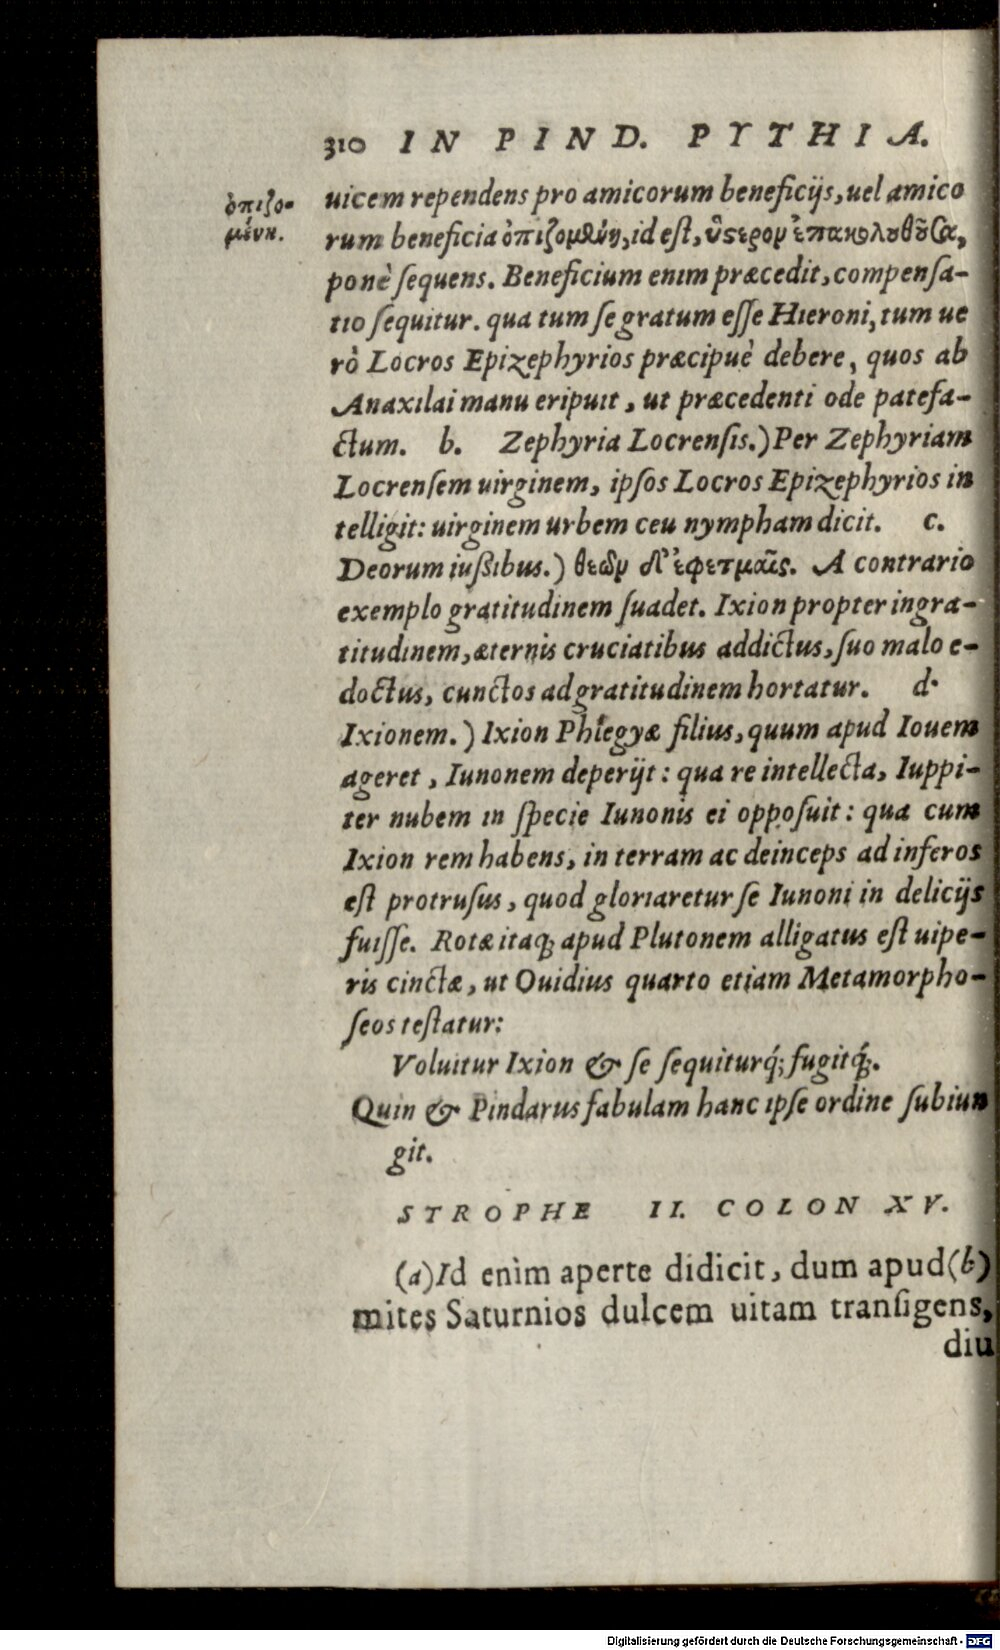 310 IN PIND. PYTHIA.
ὀπιζο-
μένη.
uicem rependens pro amicorum beneficijs, uel amico
rum beneficia ὀπιζομένη, id eſt, ὕστερον ἐπακολουθοῦσα,
ponè ſequens. Beneficium enim præcedit, compenſa-
tio ſequitur. qua tum ſe gratum eſſe Hieroni, tum ue
rò Locros Epizephyrios præcipuè debere, quos ab
Anaxilai manu eripuit, ut præcedenti ode patefa-
ctum. b. Zephyria Locrenſis.) Per Zephyriam
Locrenſem uirginem, ipſos Locros Epizephyrios in
telligit: uirginem urbem ceu nympham dicit. c.
Deorum iußibus.) θεῶν δ' ἐφετμαῖς. A contrario
exemplo gratitudinem ſuadet. Ixion propter ingra-
titudinem, æternis cruciatibus addictus, ſuo malo e-
doctus, cunctos ad gratitudinem hortatur. d.
Ixionem.) Ixion Phlegyæ filius, quum apud Iouem
ageret, Iunonem deperijt: qua re intellecta, Iuppi-
ter nubem in ſpecie Iunonis ei oppoſuit: qua cum
Ixion rem habens, in terram ac deinceps ad inferos
eſt protruſus, quod gloriaretur ſe Iunoni in delicijs
fuiſſe. Rotæ itaq; apud Plutonem alligatus eſt uipe-
ris cinctæ, ut Ouidius quarto etiam Metamorpho-
ſeos teſtatur:
Voluitur Ixion & ſe ſequiturq́; fugitq́;.
Quin & Pindarus fabulam hanc ipſe ordine ſubiun
git.
STROPHE II. COLON XV.
(a) Id enim aperte didicit, dum apud (b)
mites Saturnios dulcem uitam tranſigens,
diu
Digitalisierung gefördert durch die Deutsche Forschungsgemeinschaft - DFG